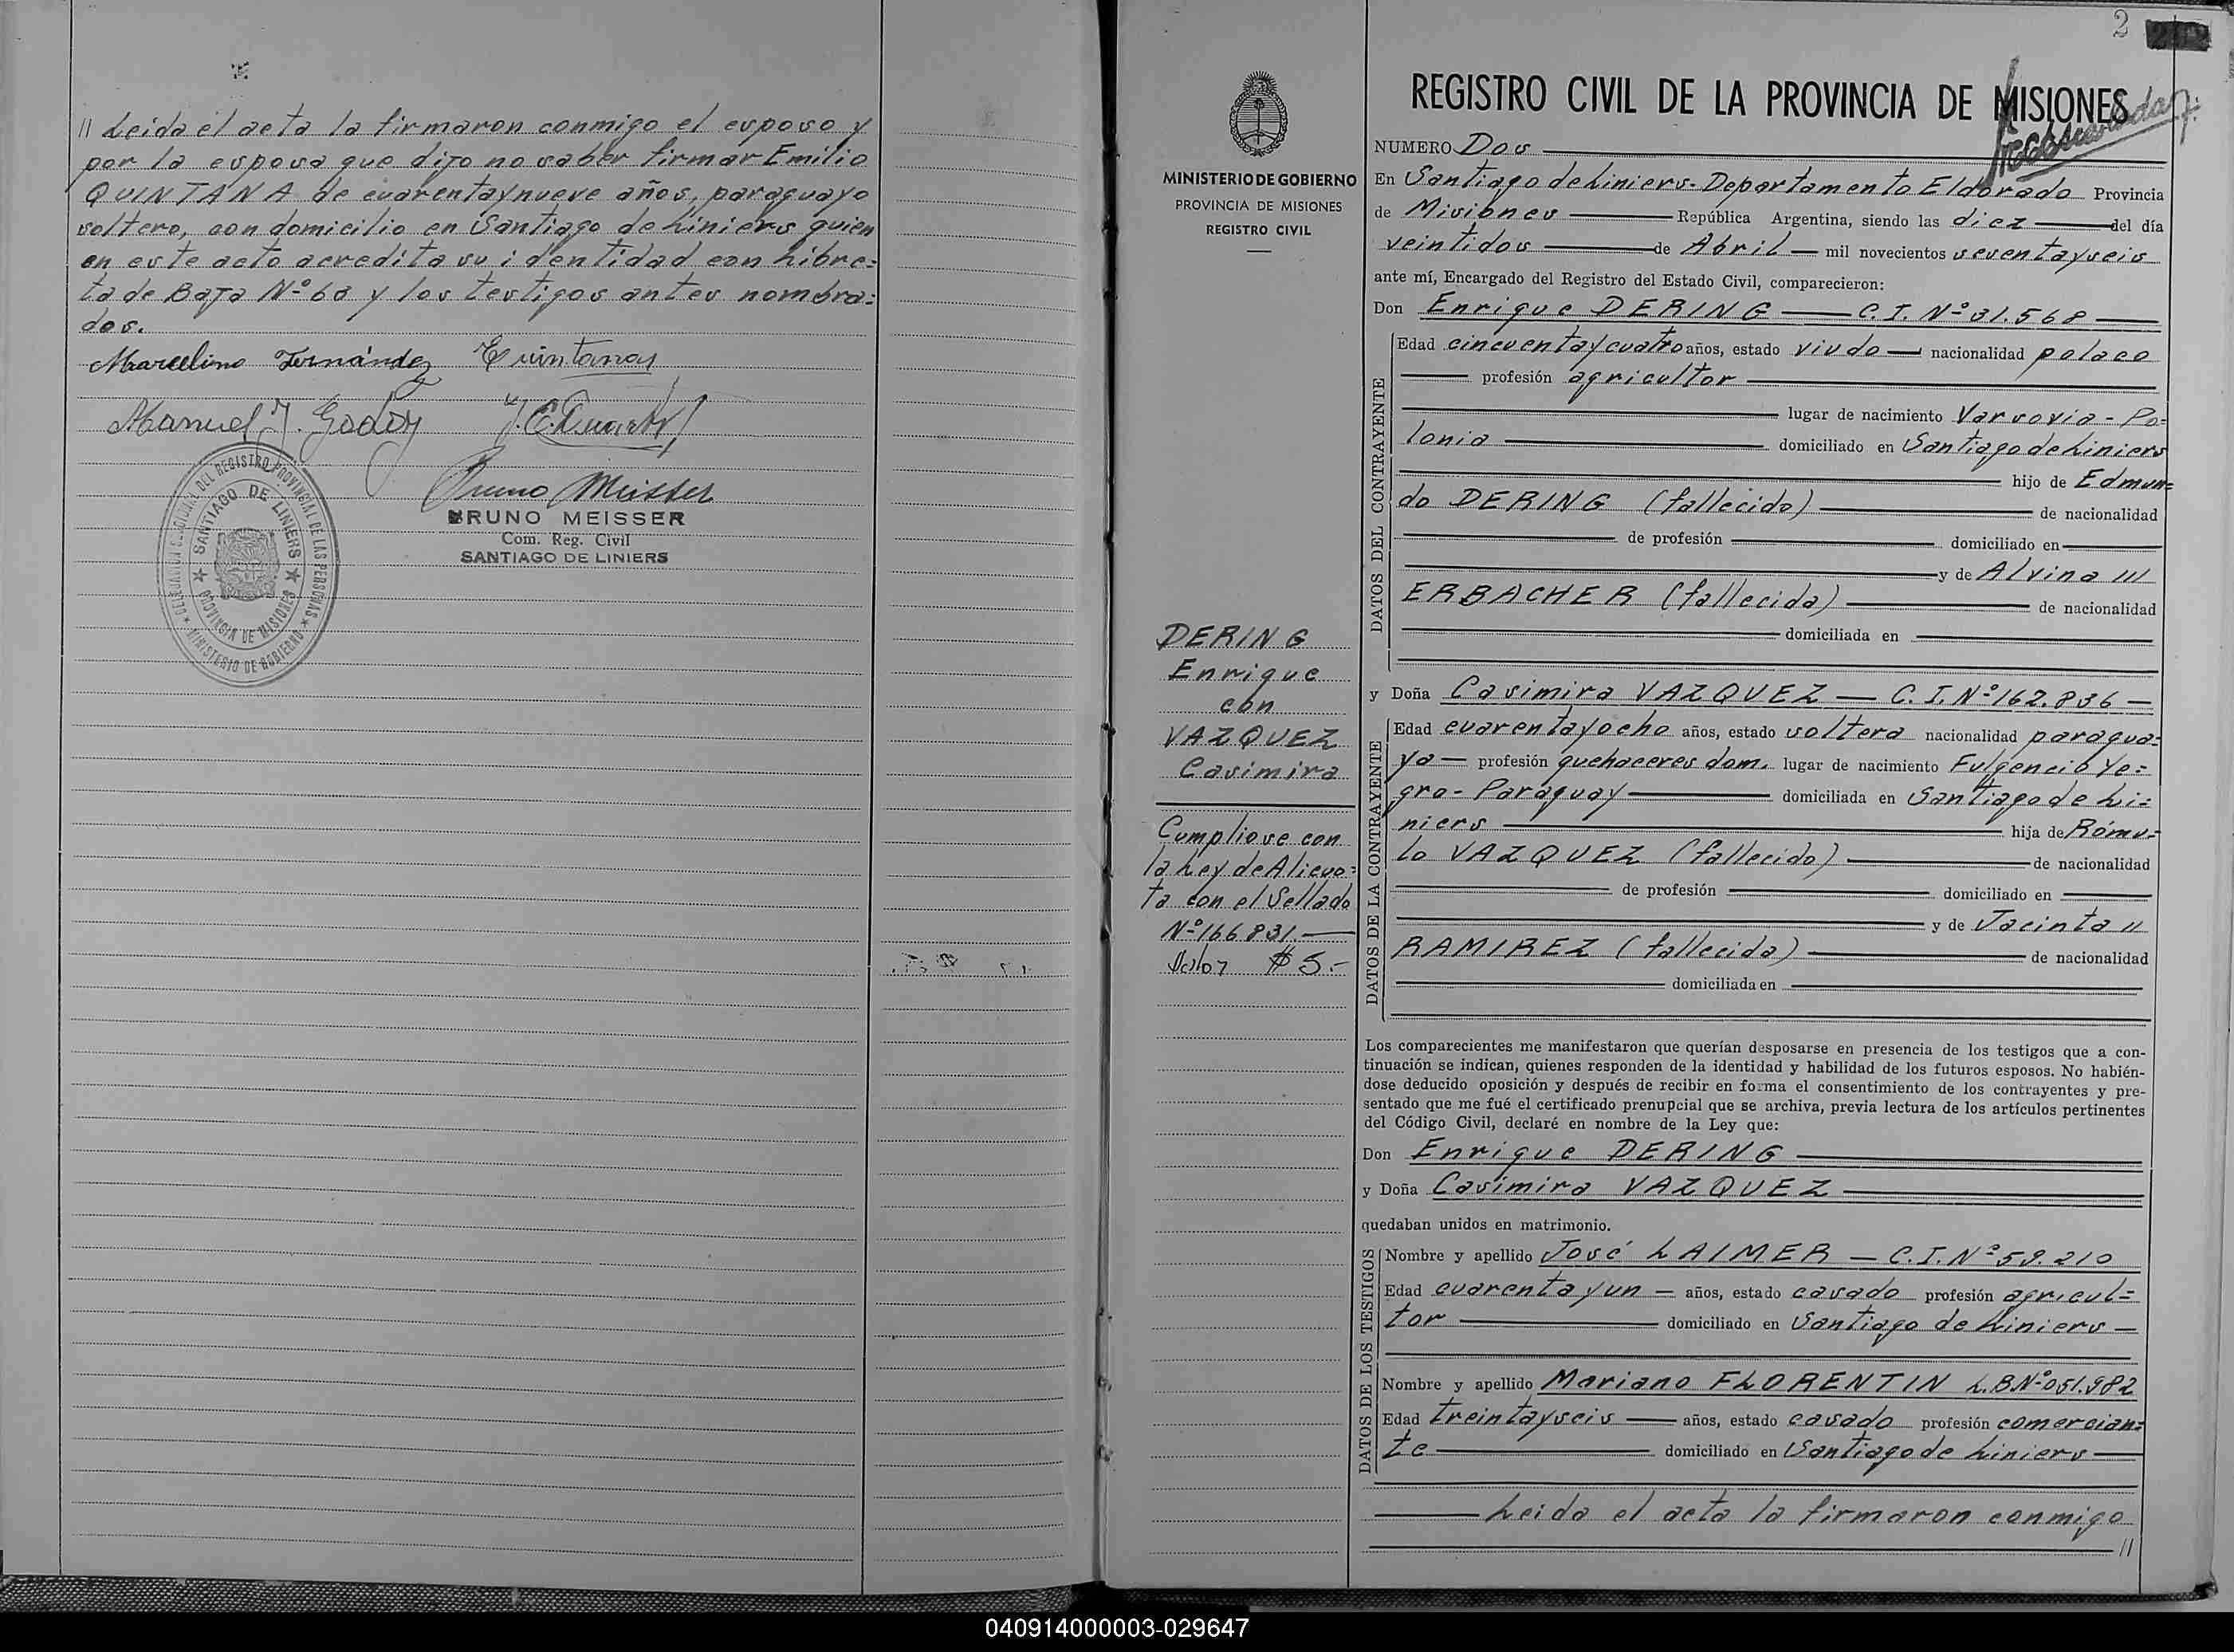 // Leida el acta la firmaron conmigo el esposo y
por la esposa que dijo no saber firmar Emilio
QUINTANA de cuarentaynueve años, paraguayo
soltero, con domicilio en Santiago de Liniers quien
en este acto acredita su identidad con Libre=
ta de Baja Nº 68 y los testigos antes nombra=
dos.
Marcelino Fernández Quintana
Manuel J. Godoy
Bruno Meisser
BRUNO MEISSER
Com. Reg. Civil
SANTIAGO DE LINIERS
DELEGACION SECCIONAL DEL REGISTRO PROVINCIAL DE LAS PERSONAS
SANTIAGO DE LINIERS
PROVINCIA DE MISIONES
MINISTERIO DE GOBIERNO
2
MINISTERIO DE GOBIERNO
PROVINCIA DE MISIONES
REGISTRO CIVIL
DERING
Enrique
con
VAZQUEZ
Casimira
Cumpliose con
la Ley de Alicuo=
ta con el Sellado
Nº 166831.—
Valor $ 5.-
REGISTRO CIVIL DE LA PROVINCIA DE MISIONES
NUMERO Dos
En Santiago de Liniers-Departamento Eldorado Provincia
de Misiones República Argentina, siendo las diez del día
veintidos de Abril mil novecientos sesentayseis
ante mí, Encargado del Registro del Estado Civil, comparecieron:
Don Enrique DERING — C.I. Nº 31.568
DATOS DEL CONTRAYENTE
Edad cincuentaycuatro años, estado viudo nacionalidad polaco
profesión agricultor
lugar de nacimiento Varsovia - Po=
lonia domiciliado en Santiago de Liniers
hijo de Edmun=
do DERING (fallecido) de nacionalidad
de profesión domiciliado en
y de Alvina ///
ERBACHER (fallecida) de nacionalidad
domiciliada en
y Doña Casimira VAZQUEZ — C.I. Nº 162.836 —
DATOS DE LA CONTRAYENTE
Edad cuarentayocho años, estado soltera nacionalidad paragua=
ya — profesión quehaceres dom. lugar de nacimiento Fulgencio Ye=
gro - Paraguay domiciliada en Santiago de Li=
niers hija de Rómu=
lo VAZQUEZ (fallecido) de nacionalidad
de profesión domiciliado en
y de Jacinta //
RAMIREZ (fallecida) de nacionalidad
domiciliada en
Los comparecientes me manifestaron que querían desposarse en presencia de los testigos que a con-
tinuación se indican, quienes responden de la identidad y habilidad de los futuros esposos. No habién-
dose deducido oposición y después de recibir en forma el consentimiento de los contrayentes y pre-
sentado que me fué el certificado prenupcial que se archiva, previa lectura de los artículos pertinentes
del Código Civil, declaré en nombre de la Ley que:
Don Enrique DERING
y Doña Casimira VAZQUEZ
quedaban unidos en matrimonio.
DATOS DE LOS TESTIGOS
Nombre y apellido José LAIMER — C.I. Nº 59.210
Edad cuarenta y un — años, estado casado profesión agricul=
tor domiciliado en Santiago de Liniers —
Nombre y apellido Mariano FLORENTIN L.B.Nº 051.982
Edad treintayseis años, estado casado profesión comercian=
te domiciliado en Santiago de Liniers
Leida el acta la firmaron conmigo
//
040914000003-029647